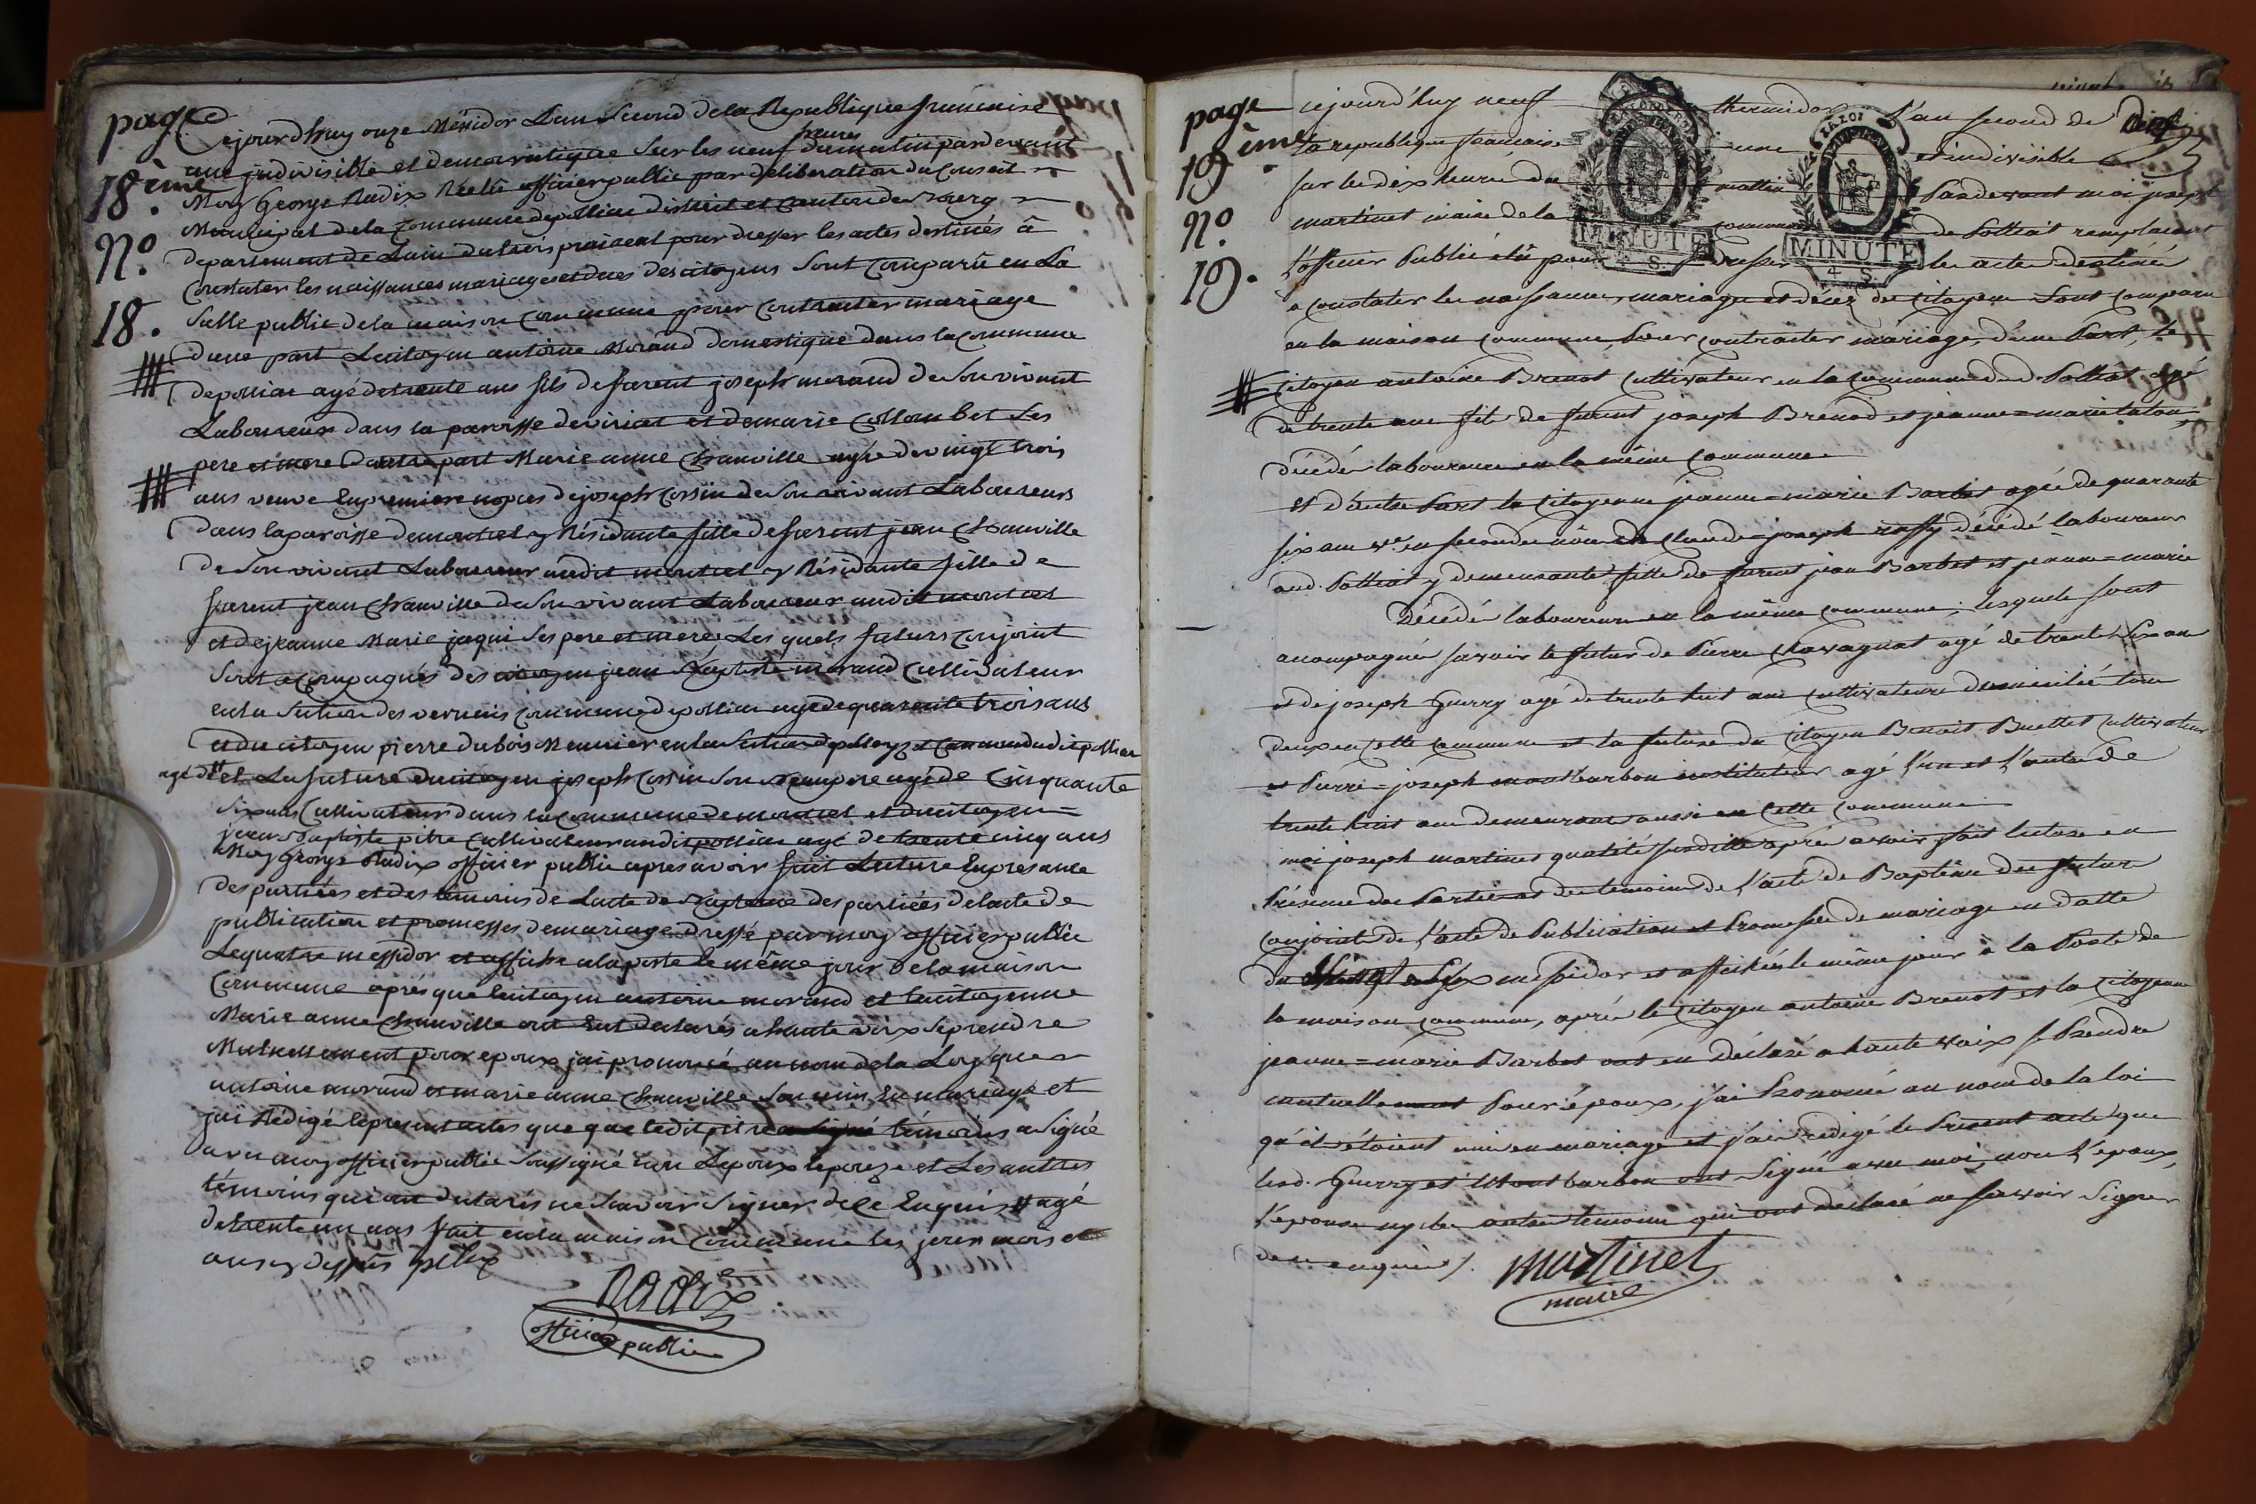 page
18.ème
N.o
18.
Cejourdhuy onze Messidor Lan Second dela Republique francaise
une indivisible et democratique Sur les neuf heures dumatin pardevant
Moy George Radix Réélu officier public par deliberation du Conseil
Municipal dela Commune depolliat district et canton de Bourg
departement de Lain dutrois prairial pour dresser les actes destinés à
Constater les naissances mariages et deces des citoyens Sont Comparu en La
Salle public dela maison Commune pour Contracter mariage
dune part Lecitoyen antoine Morand domestique dans la Commune
depolliat agé detrente ans fils de farent joseph morand de Son vivant
Laboureur dans la paroisse deviriat et de marie Collombet Ses
pere et mere Dautre part Marie anne Chanville agée de vingt trois
ans veuve En premiere nopces de joseph Cossin de Son vivant Laboureurs
dans la paroisse demontcet y Résidante fille defarent jean Chanville
de Son vivant Laboureur audit montcet y Résidante fille de
farent jean Chanville de Son vivant Laboureur audit montcet
et de jeanne Marie jaqui Ses pere et mere; Les quels futurs Conjoint
Sont acompagnés des citoyen jean Baptiste morand Cultivateur
en la Section des vernais Commune de polliat agé de quarente trois ans
et du citoyen pierre dubois Meunier en la Section et Commune dudit polliat
agé d et La future du citoyen joseph Cossin Son Beaupere agé de Cinquante
Six ans Cultivateur dans la Commune de montcet et du citoyen
jean Baptiste pitre Cultivateur audit polliat agé de trente cinq ans
Moy George Radix officier public apres avoir fait Lecture En presance
des partiées et des témoins de Lacte de Bapteme des partiées de lacte de
publication et promesses de mariage dressé par moy officier public
Le quatre messidor et affiche a la porte le même jour De la maison
Commune aprés que le citoyen antoine morand et la citoyenne
Marie anne Chanville ont Eut declarés a haute voix Se prendre
Mutuellement pour epoux jai prononcé au nom de la Loy que
antoine morand et marie anne Chanville Son unis En mariage et
jai Rédigé le present actes que que ledit pitre témoins a Signé
avec moy officier public Soussigné non Lepoux lepouze et Les autres
témoins qui ont declarés ne Scavoir Signer de ce Enquis # agé
de trente un ans fait en la maison Commune les jour mois et
an cy dessus
Radix
officier public
page
19 ème.
N.o
19.
cejourd'huy neuf thermidor l'an second de
la republique francaise une et indivisible
sur les dix heures du mattin Pardevant moi joseph
martinet maire de la commune de Polliat remplacant
l'officier Public élû pour dresser les actes destinés
a constater les naissances, mariages et décez des citoyens sont comparu
en la maison commune, Pour contracter mariage, d'une Part, le
Citoyen antoine Brenot cultivateur en la Commune dud. Polliat agé
de trente ans fils de farent joseph Brenod et jeanne=marie
décédés laboureurs en la même commune
et d'autre Part la citoyenne jeanne=marie Barbet agée de quarante
six ans v.e en secondes nôces de Claude=joseph décédé laboureur
aud. Polliat y demeurante fille de farent jean Barbet et jeanne=marie
Décédés laboureurs en la même commune; lesquels sont
acompagnés savoir le futur de Pierre Chavagnat agé de trente six ans
et de joseph Guerry agé de trente huit ans cultivateurs domiciliés tous
deux en cette commune et la future du citoyen Benoit Buellet cultivateur
et Pierre=joseph montbarbon instituteur agé l'un et l'autre de
trente huit ans demeurant aussi en cette commune
moi joseph martinet qualité susditte aprés avoir fait lecture en
Présence des Parties et des temoins de l'acte de Baptême des futurs
conjoints de l'acte de Publication et Promesses de mariage en datte
du messidor et affichés le même jour à la Porte de
la maison commune, aprés le citoyen antoine Brenot et la citoyenne
jeanne=marie Barbet ont eu déclaré a haute voix se Prendre
mutuellement Pour époux, j'ai Prononcé au nom de la loi
qu'il s'étoient unis en mariage et j'ai redigé le Présent acte que
lesd. Guerry et Montbarbon ont Signé avec moi, non l'époux,
l'épouse ny les autres temoins qui ont declaré ne savoir signer
de ce enquis /.
martinet
maire
LA LOI
MINUTE
S.
LA LOI
MINUTE
4 S.